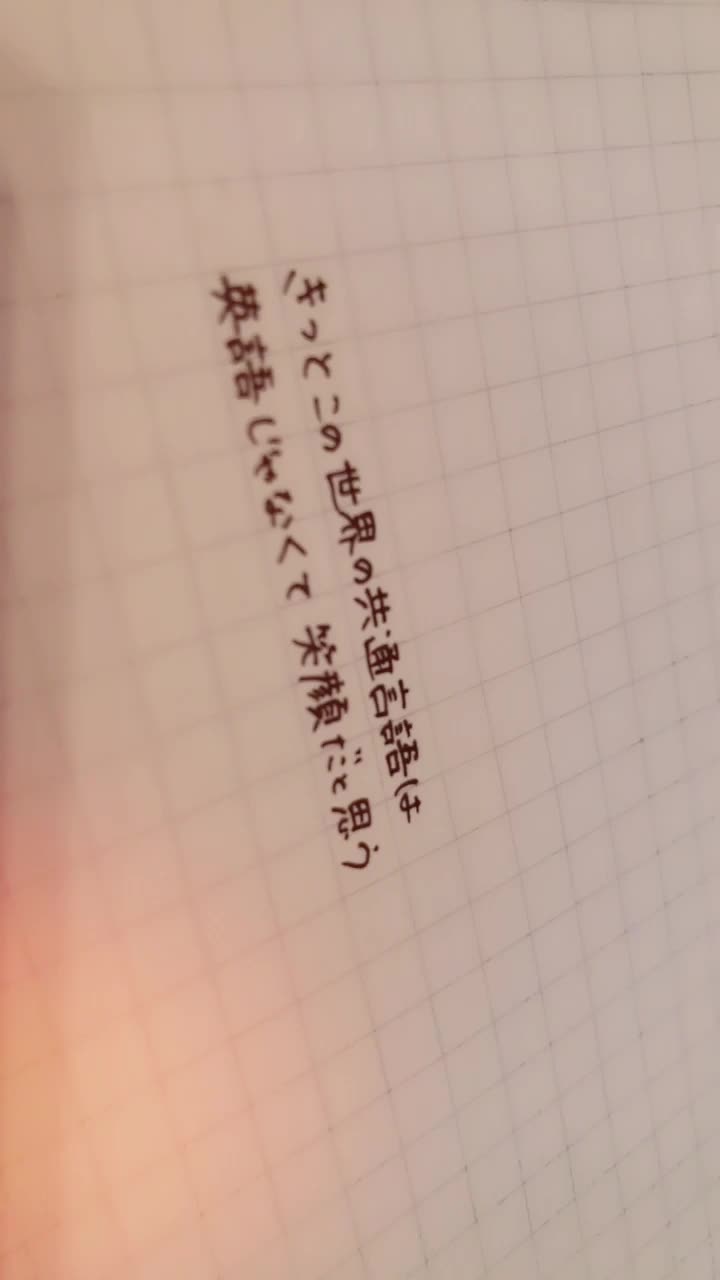 きっとこの世界の共通言語は
英語じゃなくて笑顔だと思う